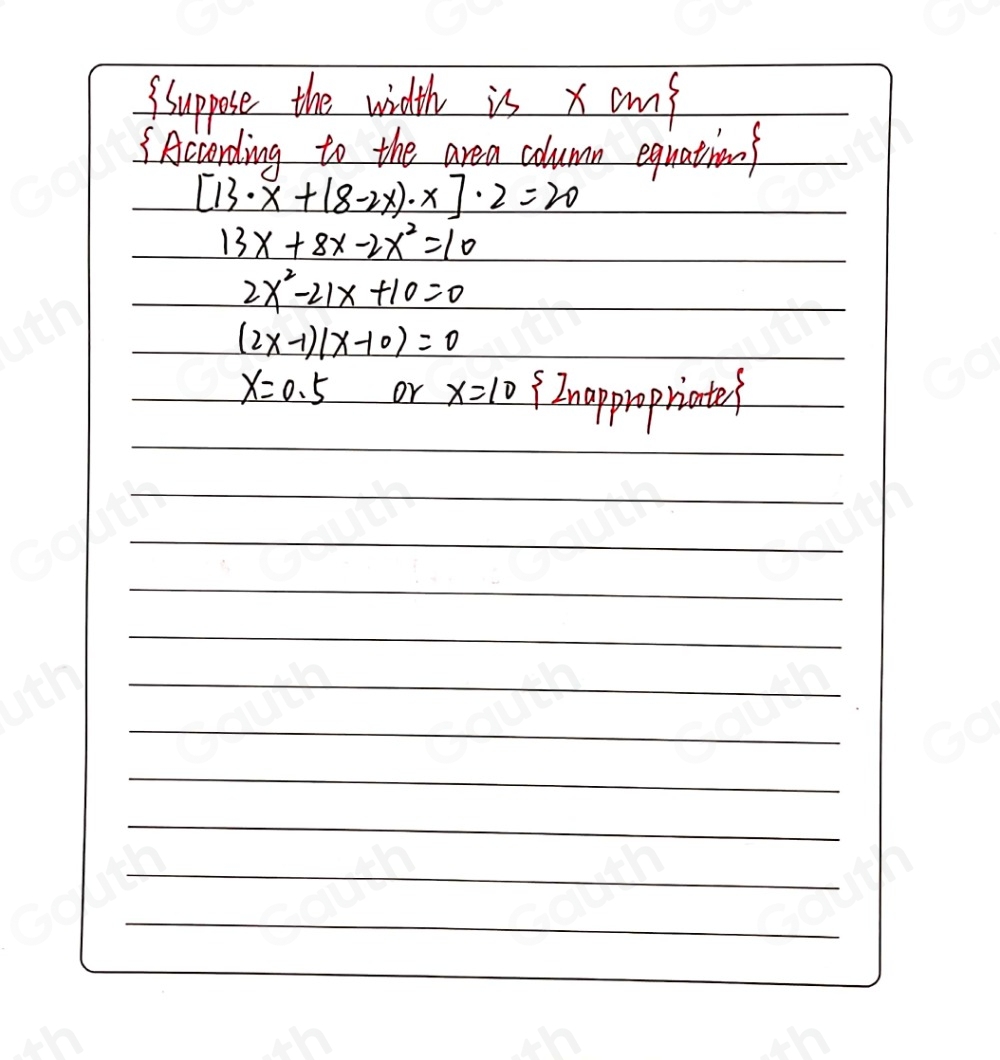 {Suppose the width is x cm}
{According to the area column equation}
[13·x+(8-2x)·x]·2=20
13x+8x-2x²=10
2x²-21x+10=0
(2x-1)(x-10)=0
x=0.5 or x=10 {Inappropriate}